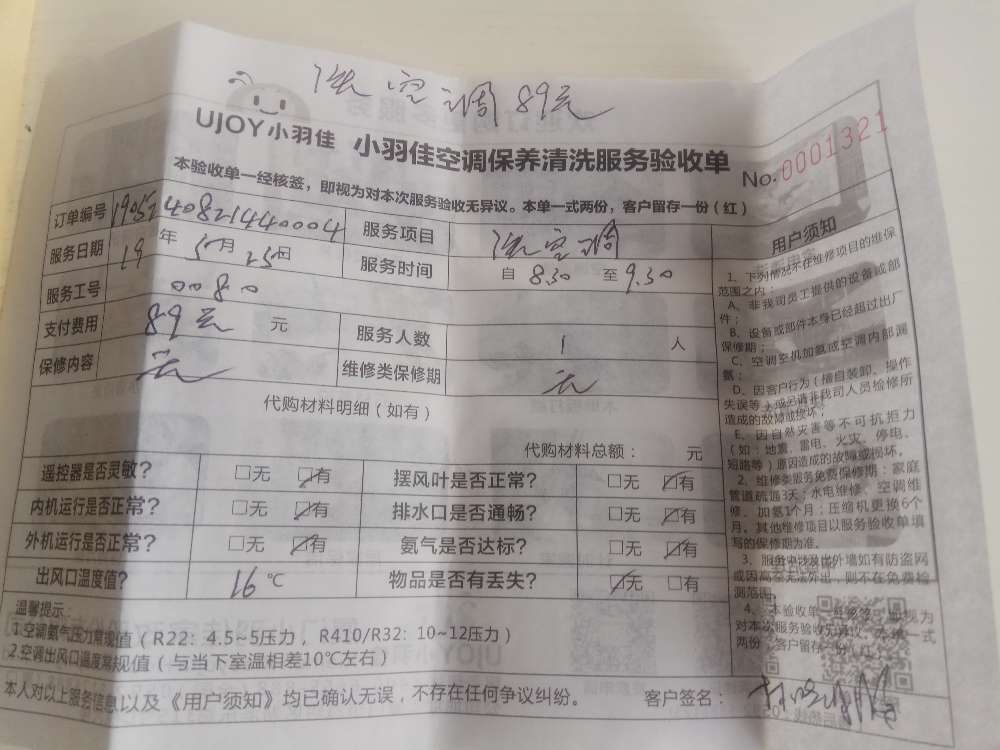 洗空调 89元
UJOY小羽佳 小羽佳空调保养清洗服务验收单 No.0001321
本验收单一经核签，即视为对本次服务验收无异议。本单一式两份，客户留存一份（红）
订单编号 1905240821440004 服务项目 洗空调
服务日期 19年 5月 25日 服务时间 自 8.30 至 9.30
服务工号 0080
支付费用 89元 元 服务人数 1 人
保修内容 无 维修类保修期 无
代购材料明细（如有）
代购材料总额： 元
遥控器是否灵敏? □无 ☑有 摆风叶是否正常? □无 ☑有
内机运行是否正常? □无 ☑有 排水口是否通畅? □无 ☑有
外机运行是否正常? □无 ☑有 氨气是否达标? □无 ☑有
出风口温度值? 16 ℃ 物品是否有丢失? ☑无 □有
温馨提示：
1.空调氨气压力常规值（R22: 4.5~5压力，R410/R32: 10~12压力）
2.空调出风口温度常规值（与当下室温相差10℃左右）
本人对以上服务信息以及《用户须知》均已确认无误，不存在任何争议纠纷。 客户签名：
用户须知
1、下列情况不在维修项目的维保
范围之内：
A、非我司员工提供的设备或部
件；
B、设备或部件本身已经超过出厂
保修期；
C、空调空机加氨或空调内部漏
氨；
D、因客户行为（擅自装卸、操作
失误等）或另请非我司人员检修所
造成的故障或损坏；
E、因自然灾害等不可抗拒力
（如：地震、雷电、火灾、停电、
短路等）原因造成的故障或损坏。
2、维修类服务免费保修期：家庭
管道疏通3天；水电维修、空调维
修、加氨1个月；压缩机更换6个
月。其他维修项目以服务验收单填
写的保修期为准。
3、服务中涉及出外墙如有防盗网
或因高空无法外出，则不在免费检
测范围。
4、本验收单一经核签，即视为
对本次服务验收无异议。本单一式
两份，客户留存一份（红）